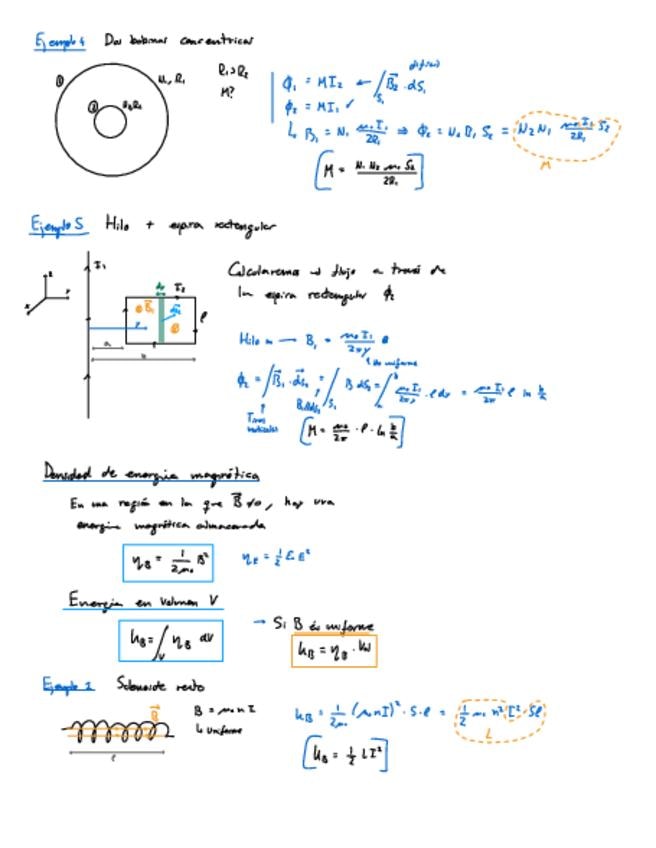 Ejemplo 4 Dos bobinas concentricas
① N₁, R₁
② N₂R₂
R₁>R₂
M?
ϕ₁ = MI₂ ← ∫S₁ B⃗₂ · dS₁ difícil
ϕ₂ = MI₁ ✓
↳ B₁ = N₁ μ₀I₁/2R₁ ⇒ ϕ₂ = N₂ B₁ S₂ = N₂N₁ μ₀I₁/2R₁ S₂
M
[M = N₁ N₂ μ₀ S₂/2R₁]
Ejemplo 5 Hilo + espira rectangular
I₁
I₂
a
b
ℓ
Calcularemos el flujo a través de
la espira rectangular ϕ₂
Hilo ∞ → B₁ = μ₀I₁/2πy
B uniforme
ϕ₂ = ∫ B⃗₁ · dS₂ = ∫S₂ B dS₂ = ∫ₐᵇ μ₀I₁/2πy · ℓ dy = μ₀I₁/2π ℓ ln b/a
Tiras
verticales
[M = μ₀/2π · ℓ · ln b/a]
Densidad de energia magnética
En una región en la que B⃗≠0, hay una
energia magnética almacenada
η_B = 1/2μ₀ B²
η_E = ½ ε E²
Energia en volumen V
U_B = ∫V η_B dV
→ Si B es uniforme
U_B = η_B · Vol
Ejemplo 1 Solenoide recto
B⃗
ℓ
B = μ₀ n I
↳ Uniforme
U_B = 1/2μ₀ (μ₀nI)² · S·ℓ = ½ μ₀ n² I² · Sℓ
L
[U_B = ½ LI²]